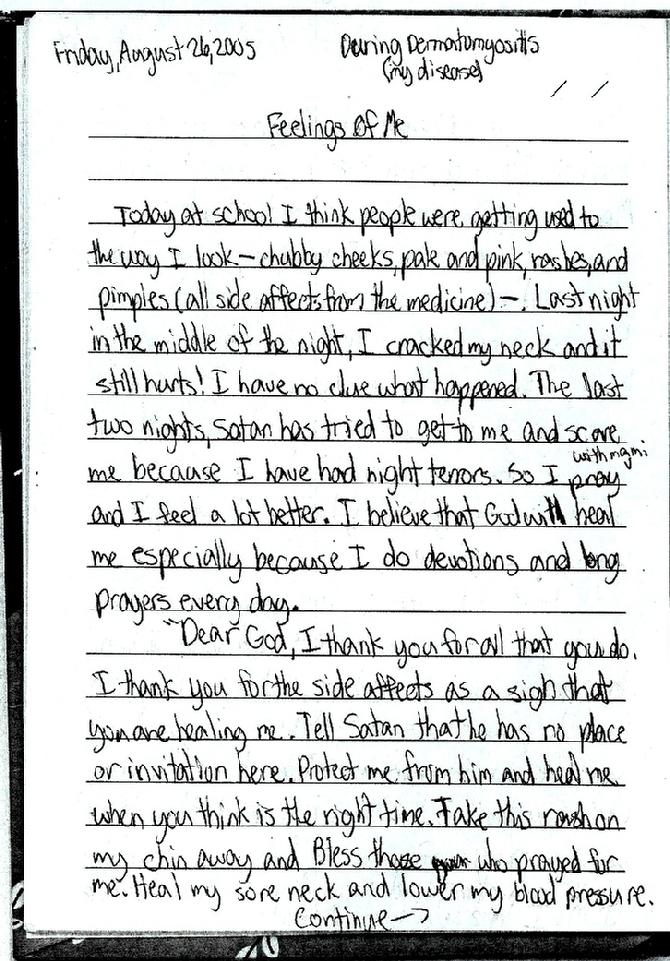 Friday, August 26, 2005
During Dermatomyositis
(my disease)
Feelings Of Me
Today at school I think people were getting used to
the way I look – chubby cheeks, pale and pink, rashes, and
pimples (all side affects from the medicine) –. Last night
in the middle of the night, I cracked my neck and it
still hurts! I have no clue what happened. The last
two nights, Satan has tried to get to me and scare
me because I have had night terrors. So I pray
with my m.
and I feel a lot better. I believe that God will heal
me especially because I do devotions and long
prayers every day.
"Dear God, I thank you for all that you do.
I thank you for the side affects as a sign that
you are healing me. Tell Satan that he has no place
or invitation here. Protect me from him and heal me
when you think is the right time. Take this rash on
my chin away and Bless those who prayed for
me. Heal my sore neck and lower my blood pressure.
Continue →